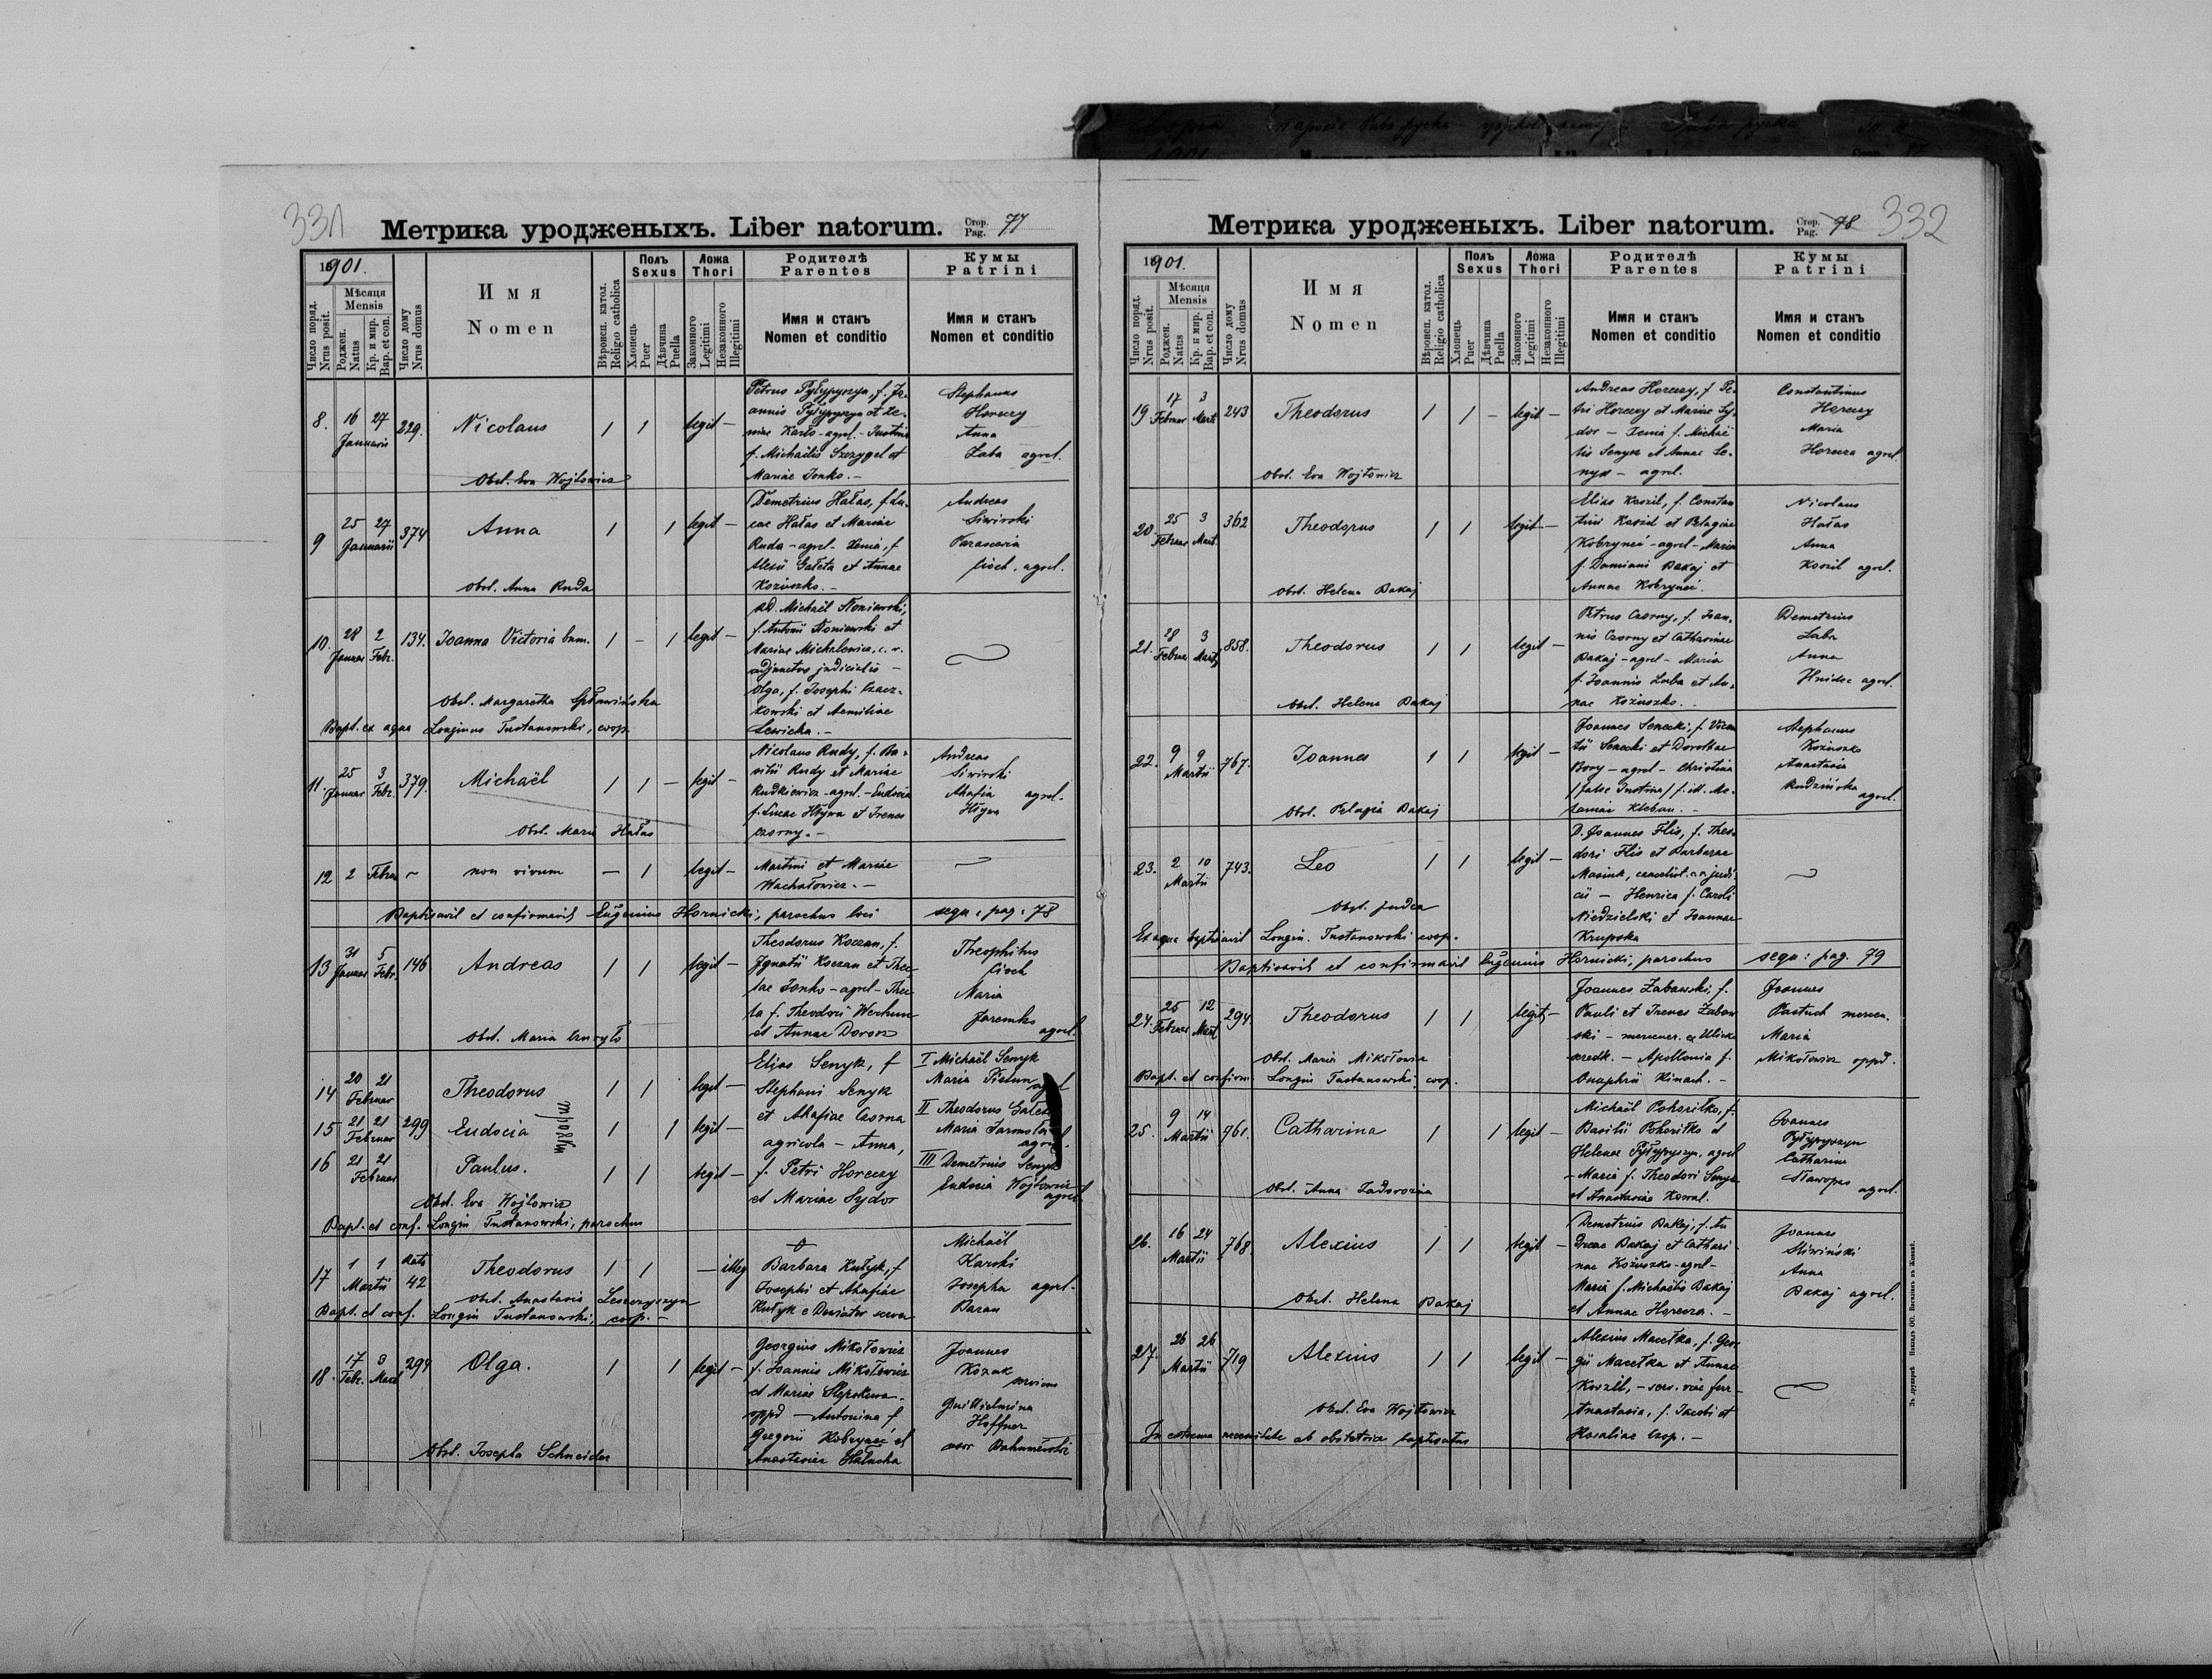 331
Метрика уродженыхъ. Liber natorum.
Стор.
Pag. 77
1901.
Число поряд.
Nrus posit.
Мѣсяця
Mensis
Роджен.
Natus
Кр. и мир.
Bap. et con.
Число дому
Nrus domus
Имя
Nomen
Вѣроисп. катол.
Religio catholica
Полъ
Sexus
Хлопець
Puer
Дѣвчина
Puella
Ложа
Thori
Законного
Legitimi
Незаконного
Illegitimi
Родителѣ
Parentes
Имя и станъ
Nomen et conditio
Кумы
Patrini
Имя и станъ
Nomen et conditio
8. 16 27 Januarii 229. Nicolaus 1 1 legit -
Petrus Pyłypyszyn, f. Jo-
annis Pyłypyszyn et Xe-
niae Karło - agrol. - Justina
f. Michaëlis Szczygel et
Mariae Jonko. -
Stephanus
Horeczy
Anna
Łaba agrol.
Obst. Eva Wojtowicz
9 25 27 Januarii 374 Anna 1 1 legit -
Demetrius Hałas, f. Lu-
cae Hałas et Mariae
Ruda - agrol - Xenia, f
Alexii Gałeta et Annae
Koziuszko. -
Andreas
Siwirski
Parascevia
Cioch, agrol.
Obst. Anna Ruda
10. 28 Januar 2 Febr. 134. Joanna Victoria bnm. 1 - 1 legit -
Michaël Słoniewski,
f. Antonii Słoniewski et
Mariae Michalewicz, c. r.
adjunctus judicialis -
Olga, f. Josephi Czacz-
kowski et Aemiliae
Lewicka. -
Obst. Margaretha Spławińska
Bapt. ex aqua Longinus Tustanowski, coop.
11. 25 Januar 3 Febr. 379. Michaël 1 1 - legit -
Nicolaus Rudy, f. Ba-
silii Rudy et Mariae
Rudkiewicz - agrol. - Eudocia
f. Lucae Hływa et Irenes
Czorny. -
Andreas
Siwirski
Ahafia agrol.
Hływa
Obst. Maria Hałas
12 2 Febru - non vivum - 1 legit -
Martini et Mariae
Wachałowicz. -
Baptisavit et confirmavit Eugenius Hornicki, parochus loci sequ: pag: 78
13 31 Januar 5 Febr. 146 Andreas 1 1 legit -
Theodorus Koczan, f.
Ignatii Koczan et Thec-
lae Jonko - agrol - Thec-
la f. Theodori Werhun
et Annae Dorosz
Theophilus
Cioch
Maria
Jaremko
agrol.
Obst. Maria
14 20 21 Februar Theodorus 1 1 legit -
15 21 21 Februar 299 Eudocia 1 1 legit -
16 21 21 Februar Paulus. 1 1 legit -
тройкм
Elias Senyk, f
Stephani Senyk
et Ahafiae Czorna
agricola - Anna,
f. Petri Horeczy
et Mariae Sydor
I Michaël Senyk
Maria Pistun
II Theodorus Gałeta
Maria
agrol.
III Demetrius Senyk
Eudocia Wojtowicz
agrol.
Obst. Eva Wojtowicz
Bapt. et conf. Longin Tustanowski, parochus
17 1 1 Martii Rata 42 Theodorus 1 1 - illeg
Barbara Kułyk, f
Josephi et Ahafiae
Kułyk e serva
Michaël
Karski
Josepha agrol.
Baran
Obst. Anastasia Leszczyszyn
Bapt. et conf. Longin Tustanowski, coop. -
18. 17 Febr. 3 Mart 294 Olga. 1 1 legit -
Georgius Mikołowicz
f. Joannis Mikołowicz
et Mariae
oppd - Antonina f
Gregorii Kobryneć et
Anastasiae Hałucha
Joannes
Kozak
serviens
Guilielmina
Hoffner
Obst. Josepha Schneider
332
Метрика уродженыхъ. Liber natorum.
Стор.
Pag. 78
1901.
Число поряд.
Nrus posit.
Мѣсяця
Mensis
Роджен.
Natus
Кр. и мир.
Bap. et con.
Число дому
Nrus domus
Имя
Nomen
Вѣроисп. катол.
Religio catholica
Полъ
Sexus
Хлопець
Puer
Дѣвчина
Puella
Ложа
Thori
Законного
Legitimi
Незаконного
Illegitimi
Родителѣ
Parentes
Имя и станъ
Nomen et conditio
Кумы
Patrini
Имя и станъ
Nomen et conditio
19. 17 Februar 3 Mart 243 Theodorus 1 1 - legit -
Andreas Horeczy, f. Pe-
tri Horeczy et Mariae Sy-
dor - Xenia f. Michaë
lis Senyk et Annae Se-
nyk - agrol.
Constantinus
Horeczy
Maria
Horecza agrol
Obst. Eva Wojtowicz
20. 25 Februar 3 Mart 362 Theodorus 1 1 legit -
Elias Koszil, f. Constan
tini Koszil et Pelagiae
Kobryneć - agrol - Maria
f. Damiani Bakaj et
Annae Kobryneć.
Nicolaus
Hałas
Anna
Koszil agrol.
Obst. Helena Bakaj
21. 28 Februar 3 Martii 858. Theodorus 1 1 legit -
Petrus Czorny, f. Joan-
nis Czorny et Catharinae
Bakaj - agrol - Maria
f. Joannis Łaba et An-
nae Koziuszko. -
Demetrius
Łaba
Anna
Hnidec agrol.
Obst. Helena Bakaj
22. 9 9 Martii 767. Joannes 1 1 legit -
Joannes Senecki, f. Vicen
tii Senecki et Dorotheae
Bovy - agrol - Christina
/false Justina/ f. ill. Me-
laniae Kleban. -
Stephanus
Koziuszko
Anastasia
Rudzińska
agrol.
Obst. Pelagia Bakaj
23. 2 10 Martii 743. Leo 1 1 legit -
D. Joannes Flis, f. Theo-
dori Flis et Barbarae
Masiuk, cancelist. c. r. judi
cii - Henrica f. Caroli
Niedzielski et Joannae
Krupska
Obst. judea
Ex aqua baptisavit Longin. Tustanowski coop.
Baptisavit et confirmavit Eugenius Hornicki, parochus sequ: pag. 79
24. 25 Februar 12 Mart 294. Theodorus 1 1 legit -
Joannes Żabawski, f.
Pauli et Irenes Żabaw
ski - mercener. ex Ulicko
seredk. - Apollonia f.
Onuphrii Kinach. -
Joannes
Pastuch mercen.
Maria
Mikołowicz oppd.
Obst. Maria Mikołowicz
Bapt. et confirm. Longin Tustanowski, coop.
25. 9 14 Martii 961. Catharina 1 1 legit -
Michaël Pohoriłko, f.
Basilii Pohoriłko et
Helenae Pyłypyszyn, agrol
- Maria f. Theodori Senyk
et Anastasiae Kowal.
Joannes
Pyłypyszyn
Catharina
agrol.
Obst. Anna Zadorozna
26. 16 24 Martii 768. Alexius 1 1 legit -
Demetrius Bakaj, f. An
dreae Bakaj et Cathari-
nae Koziuszko - agrol -
Maria f. Michaëlis Bakaj
et Annae Horecza. -
Joannes
Śliwiński
Anna
Bakaj agrol.
Obst. Helena Bakaj
27. 26 26 Martii 719 Alexius 1 1 legit -
Alexius Macełka, f. Geor-
gii Macełka et Annae
Koszil, - serv. viae ferr -
Anastasia, f. Jacobi et
Rosaliae Czop. -
Obst. Eva Wojtowicz
In extrema necessitate ab obstetrice baptisatus